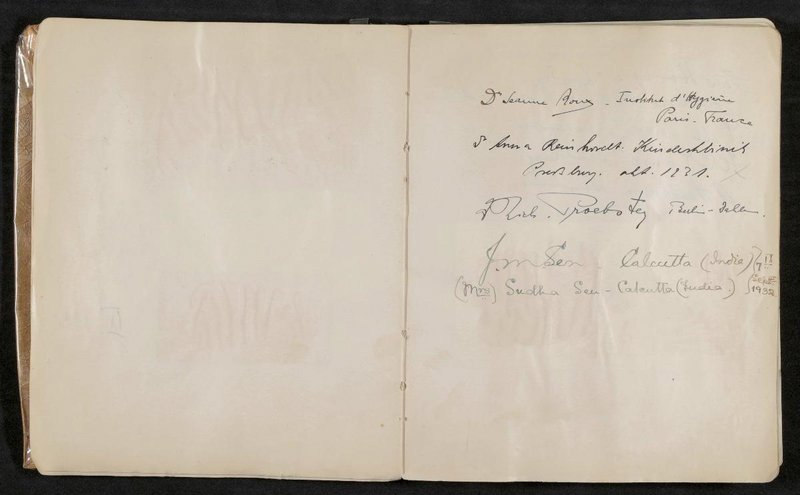 Dr Jeanne Roux - Institut d'Hygiène
Paris - France
Dr Anna Reinhardt. Kinderklinik
Pressburg. okt. 1931.
Dr Rich. Berlin -
J. M Sen Calcutta (India) 7
(Mrs) Sudha Sen - Calcutta (India.) Sept 1932